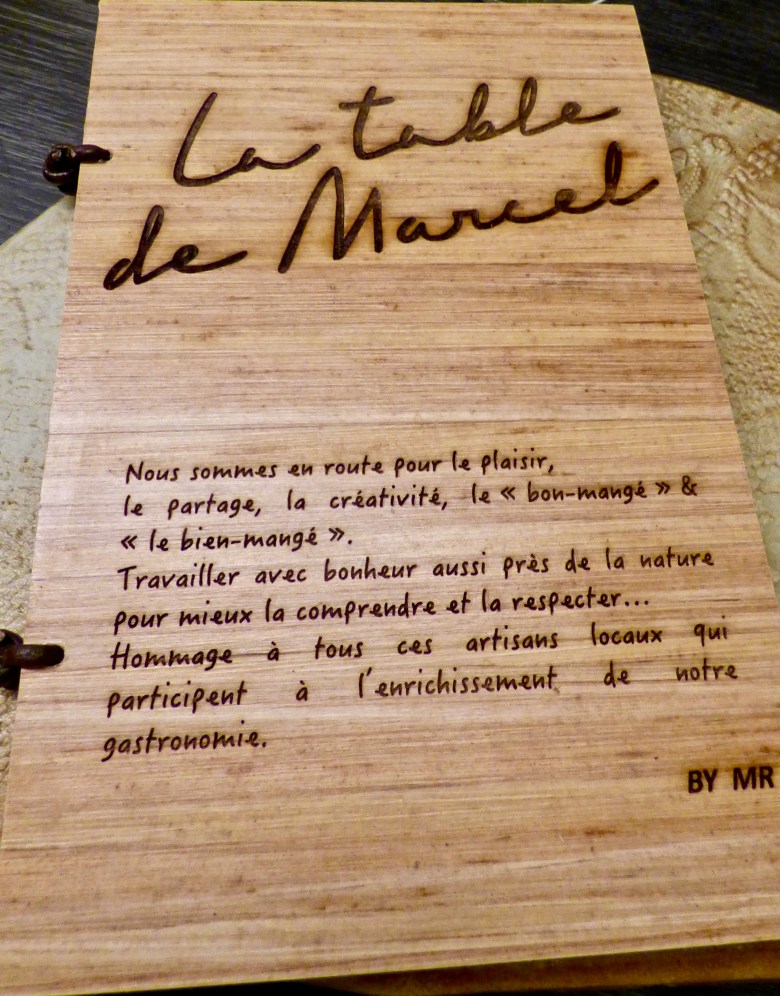 La table
de Marcel
Nous sommes en route pour le plaisir,
le partage, la créativité, le « bon-mangé » &
« le bien-mangé ».
Travailler avec bonheur aussi près de la nature
pour mieux la comprendre et la respecter...
Hommage à tous ces artisans locaux qui
participent à l'enrichissement de notre
gastronomie.
BY MR